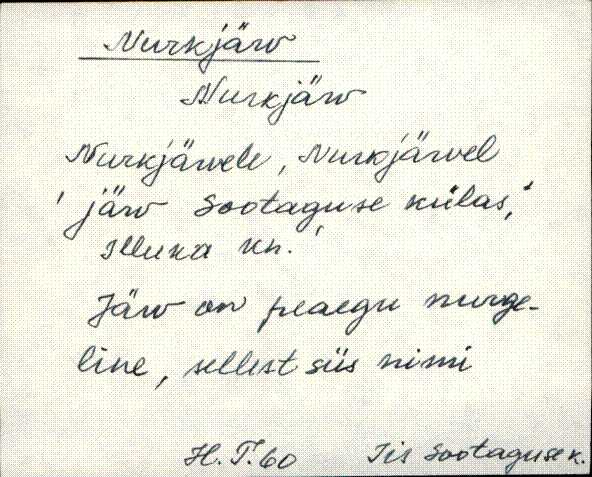 Nurkjärv
Nurkjärv
Nurkjärvele, Nurkjärvel
'järv Sootaguse külas,
Illuka kn.'
Järv on peaegu nurge-
line, sellest siis nimi
H. T. 60 Iis Sootaguse k.